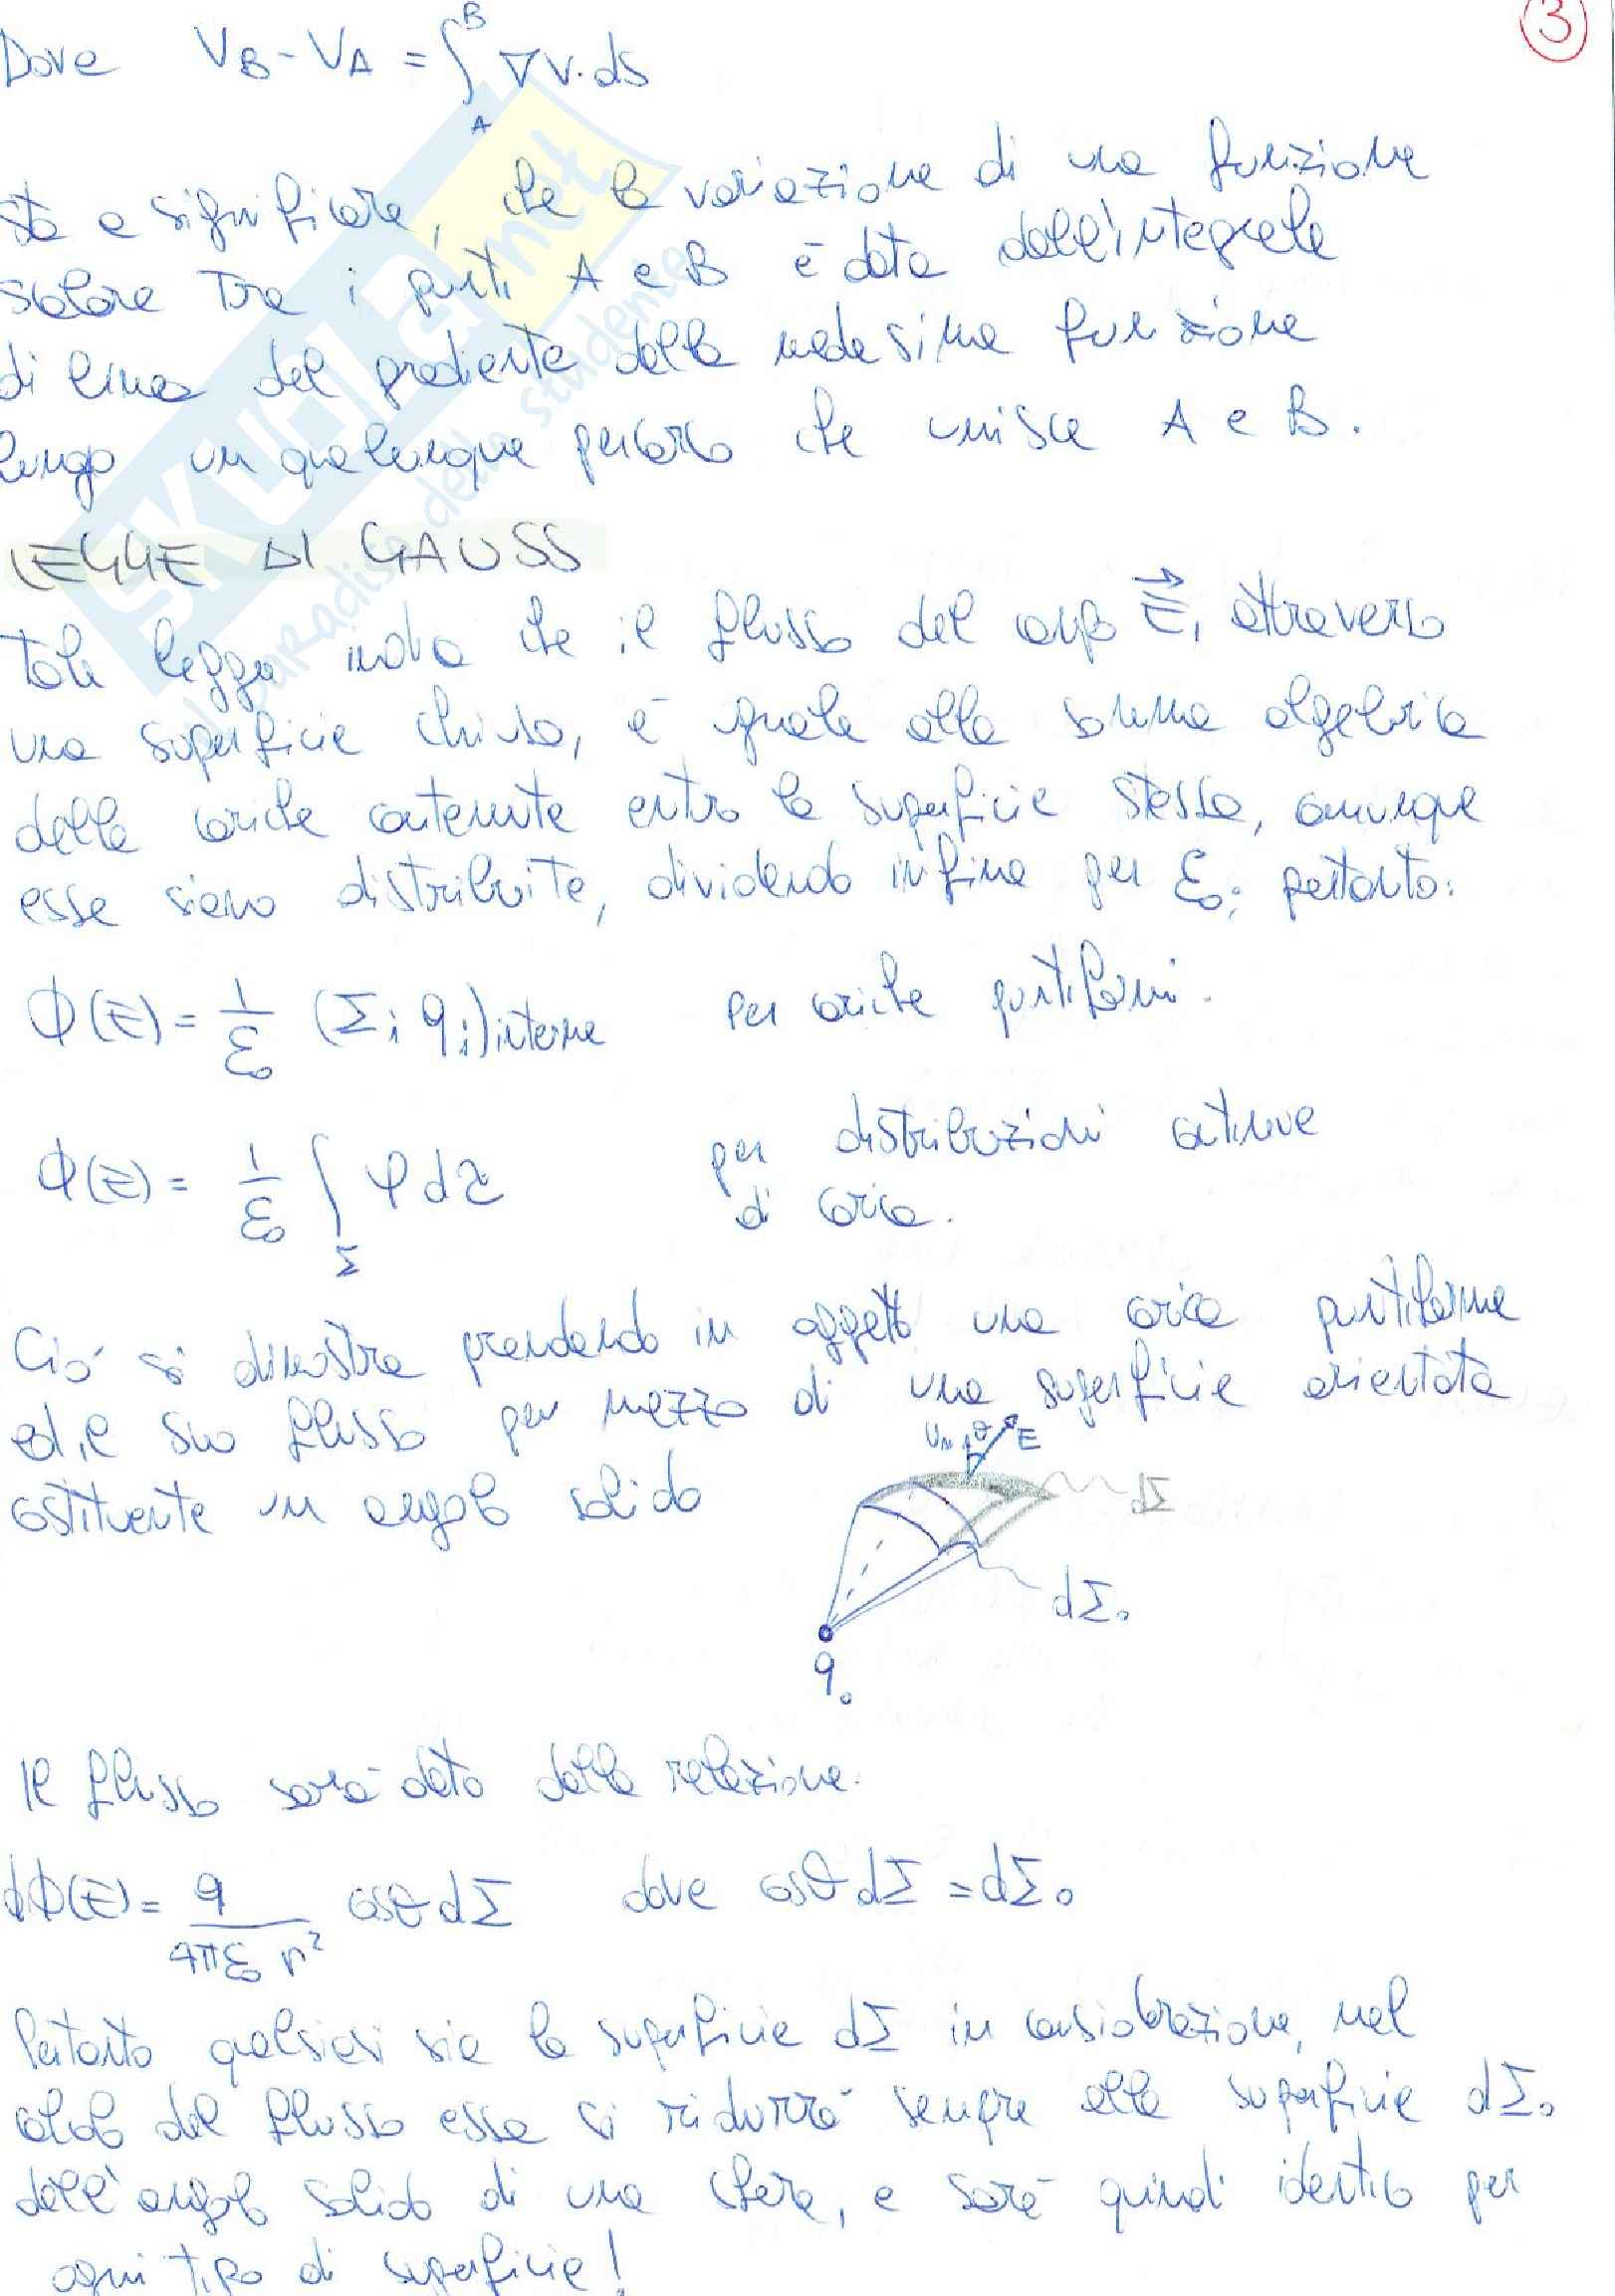 3
Dove V_B - V_A = ∫_A^B ∇V · ds
sta a significare, che la variazione di una funzione
scalare tra i punti A e B è data dall'integrale
di linea del gradiente della medesima funzione
lungo un qualunque percorso che unisce A e B.
LEGGE DI GAUSS
Tale legge indica che il flusso del campo E⃗, attraverso
una superficie chiusa, è uguale alla somma algebrica
delle cariche contenute entro la superficie stessa, comunque
esse siano distribuite, dividendo infine per ε₀; pertanto:
Φ(E) = 1/ε₀ (Σᵢ qᵢ)interne per cariche puntiformi.
Φ(E) = 1/ε₀ ∫_Σ ρ dτ per distribuzioni continue
di carica.
Ciò si dimostra prendendo in oggetto una carica puntiforme
ed il suo flusso per mezzo di una superficie orientata
costituente un angolo solido
Uₙ θ E
dΣ
dΣ₀
q₀
Il flusso sarà dato dalla relazione:
dΦ(E) = q/(4πε₀ r²) cosθ dΣ dove cosθ dΣ = dΣ₀
Pertanto qualsiasi sia la superficie dΣ in considerazione, nel
calcolo del flusso essa si ridurrà sempre alla superficie dΣ₀
dell'angolo solido di una sfera, e sarà quindi identico per
ogni tipo di superficie!
SKUOLA.net
il paradiso dello studente